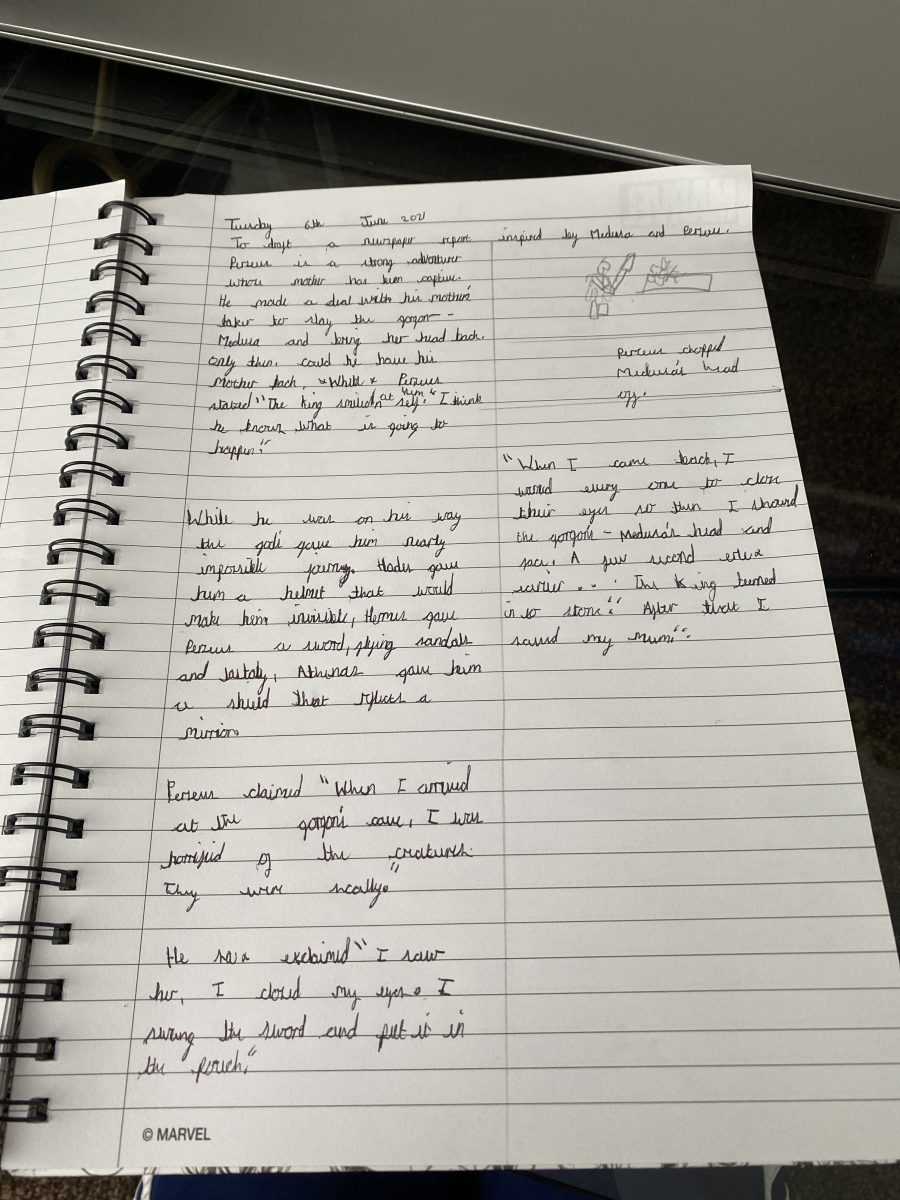 Tuesday 6th June 2021
To draft a newspaper report inspired by Medusa and Perseus.
Perseus is a strong adventurer
whose mother has been captive.
He made a deal with his mother's
taker to slay the gorgon -
Medusa and bring her head back.
Only then, could he have his
Mother back, Perseus
stated "The king smiled at him self." I think
he knows what is going to
happen."
While he was on his way
the gods gave him nearly
impossible journey. Hades gave
him a helmet that would
make him invisible, Hermes gave
Perseus a sword, flying sandals
and lastaly, Athenas gave him
a shield that reflects a
mirror.
Perseus claimed "When I arrived
at the gorgon's cave, I was
horrifid of the creatures.
They were scally."
He exclaimed "I saw
her, I closed my eyes. I
swung the sword and put it in
the pouch."
Perseus chopped
Medusa's head
off.
"When I came back, I
warned every one to close
their eyes so then I showed
the gorgon's - Medusa's head and
face. A few second
earlier... The King turned
in to stone." After that I
saved my mum".
© MARVEL